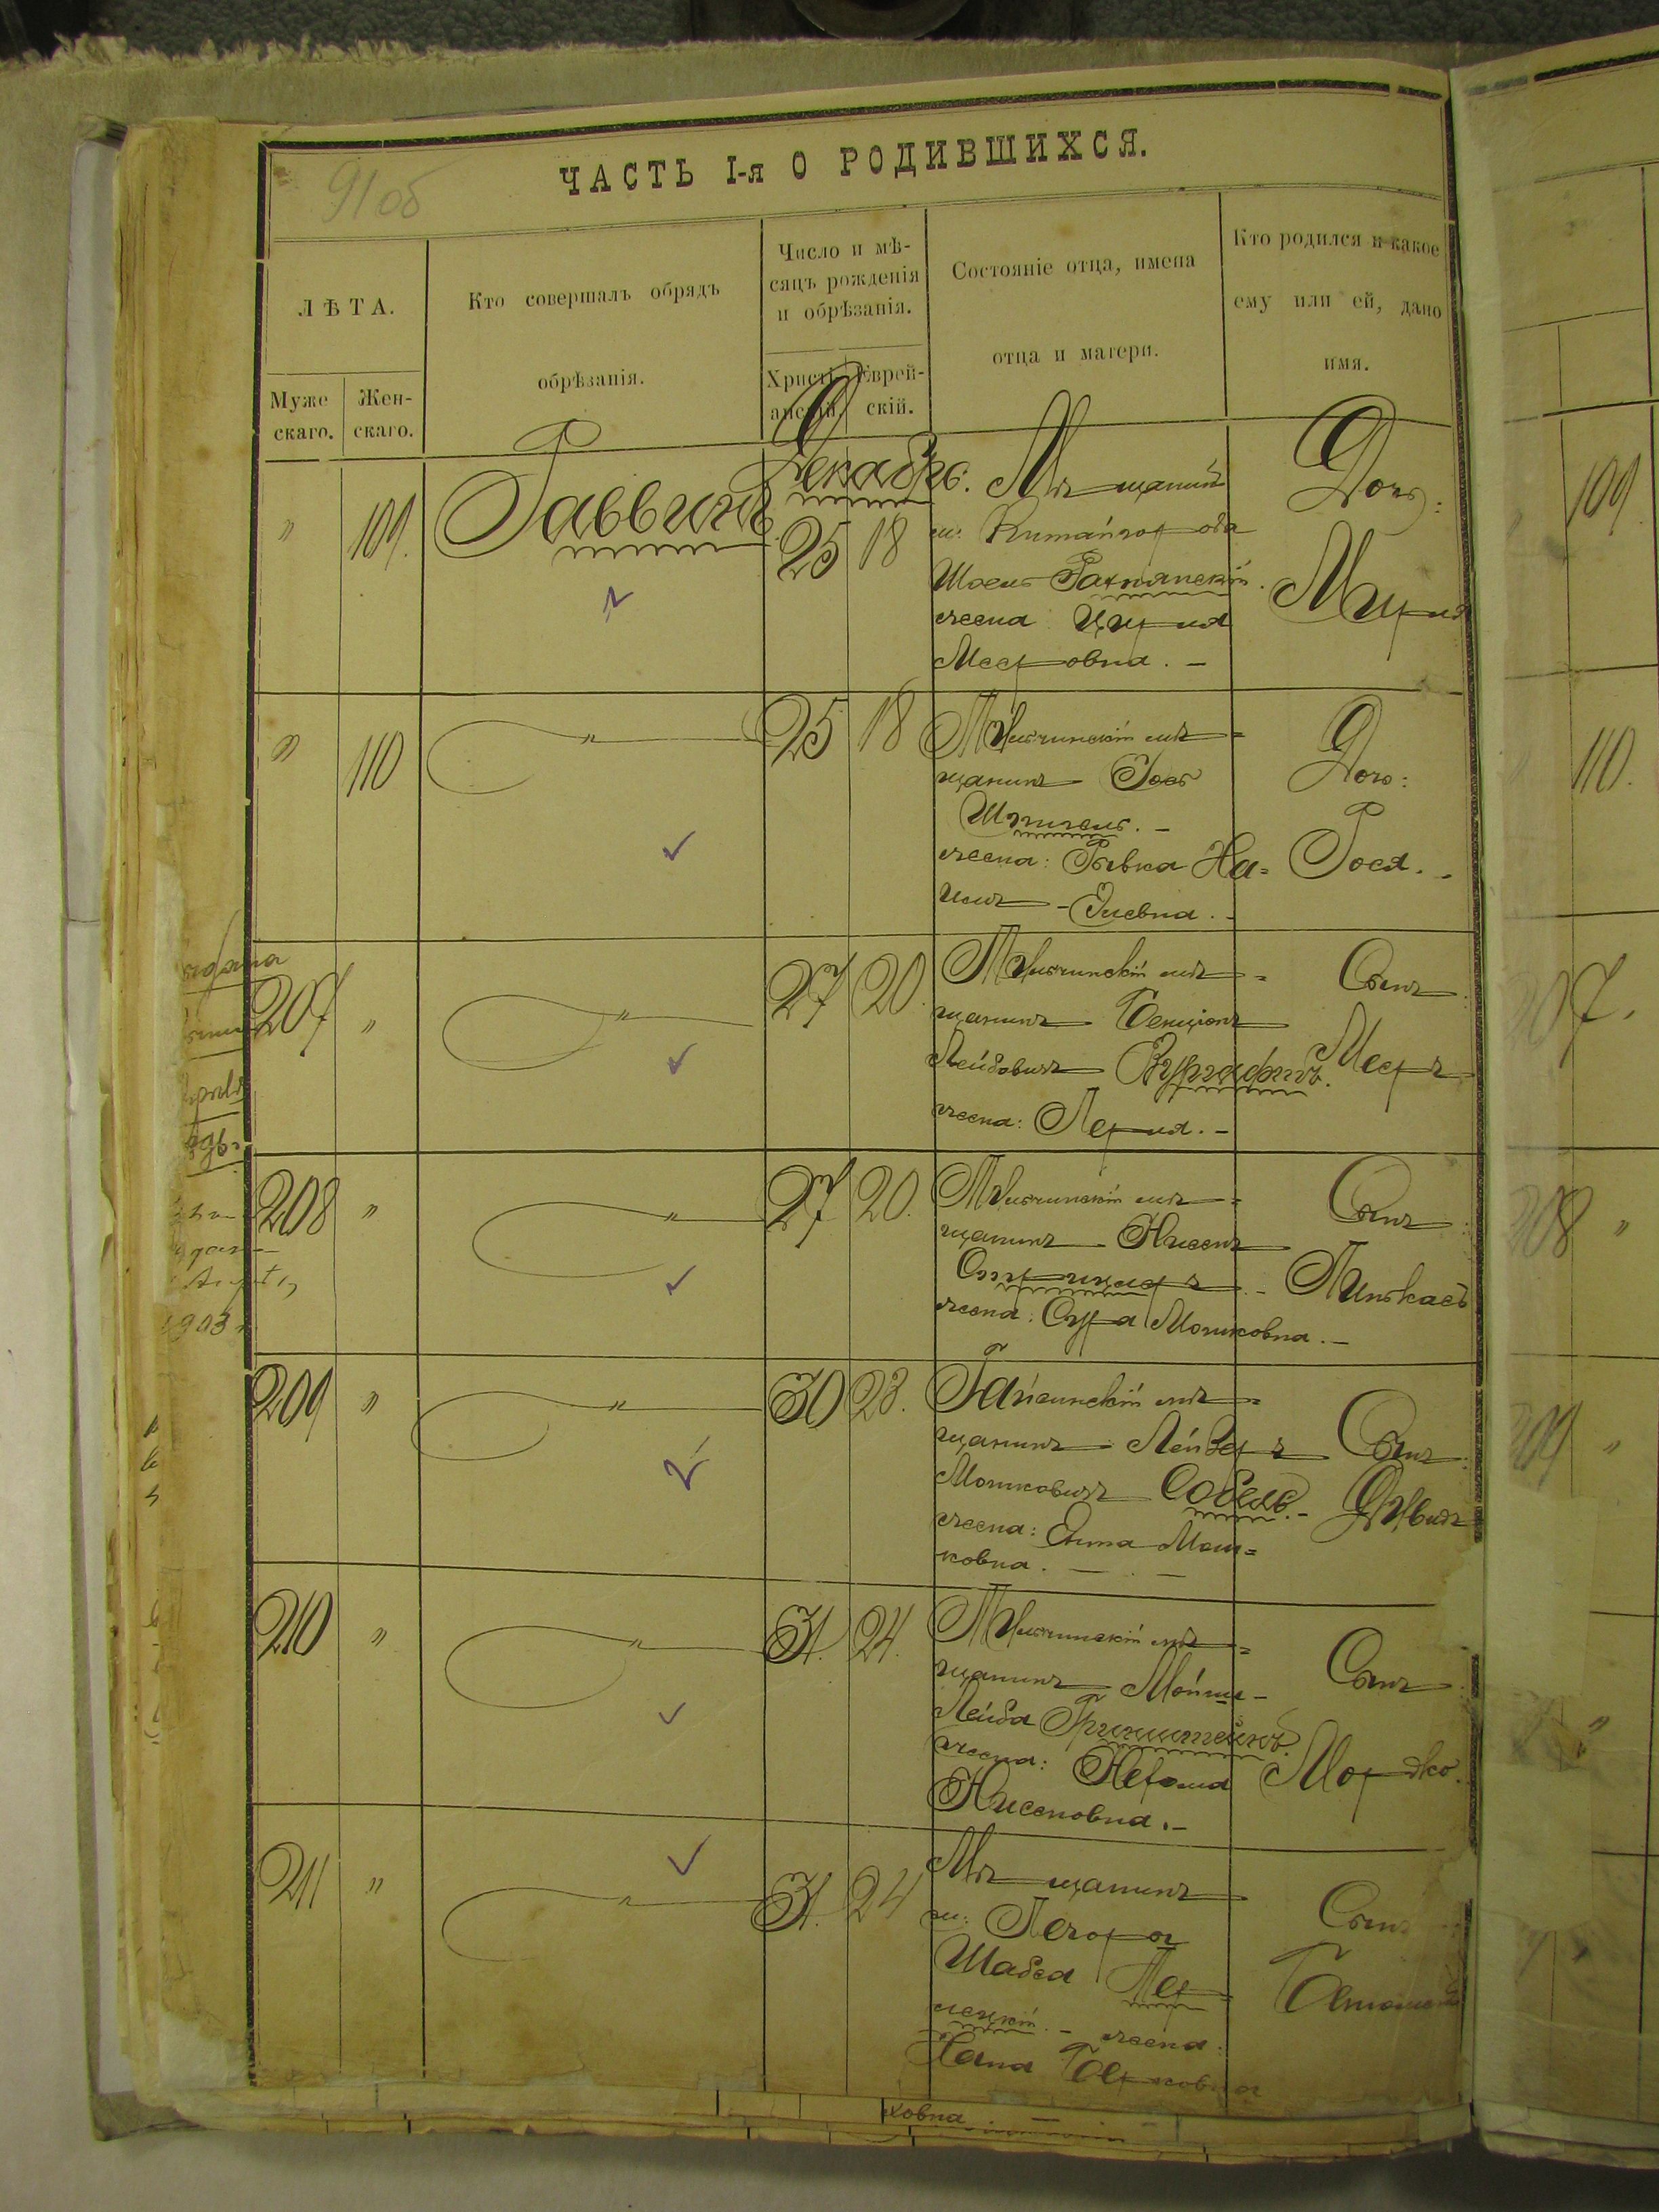 91 об
ЧАСТЬ I-я О РОДИВШИХСЯ.
ЛѢТА.
Муже скаго.
Жен- скаго.
Кто совершалъ обрядъ
обрѣзанія.
Число и мѣ-
сяцъ рожденія
и обрѣзанія.
Христі- анскій.
Еврей- скій.
Состояніе отца, имена
отца и матери.
Кто родился и какое
ему или ей, дано
имя.
" 109. Раввинъ Декабрь. 25 18
Мѣщанинъ
м. Китайгорода
Шоель Рахнянскій.
жена Цирля
Мееровна. –
Дочь:
" 110 " 25 18
мѣ=
щанинъ Іось
Шпигель. –
жена: Рывка На=
Дочь:
Рося. –
207 " " 27 20.
мѣ=
щанинъ Бенціонъ
Лейбовичъ
жена: Перля. –
Сынъ:
Мееръ
208 " " 27 20.
мѣ=
щанинъ Нисенъ
жена: Сура Мошковна. –
Сынъ:
Пинькасъ
209 " " 30 23.
Гайсинскій мѣ=
щанинъ Лейзеръ
Мошковичъ Собель. –
жена: Ента Мош=
ковна. –
Сынъ:
Дувидъ
210 " " 31. 24.
мѣ=
щанинъ Мойше-
Лейба Гринштейнъ.
жена: Нехама
Нисеновна. –
Сынъ:
Мордко.
211 " " 31. 24
Мѣщанинъ
м. Печора
Шабса Пер=
лецкій. – жена:
Хана Берковна
Сынъ
109
110.
207.
208 "
209 "
"
ховна
1903